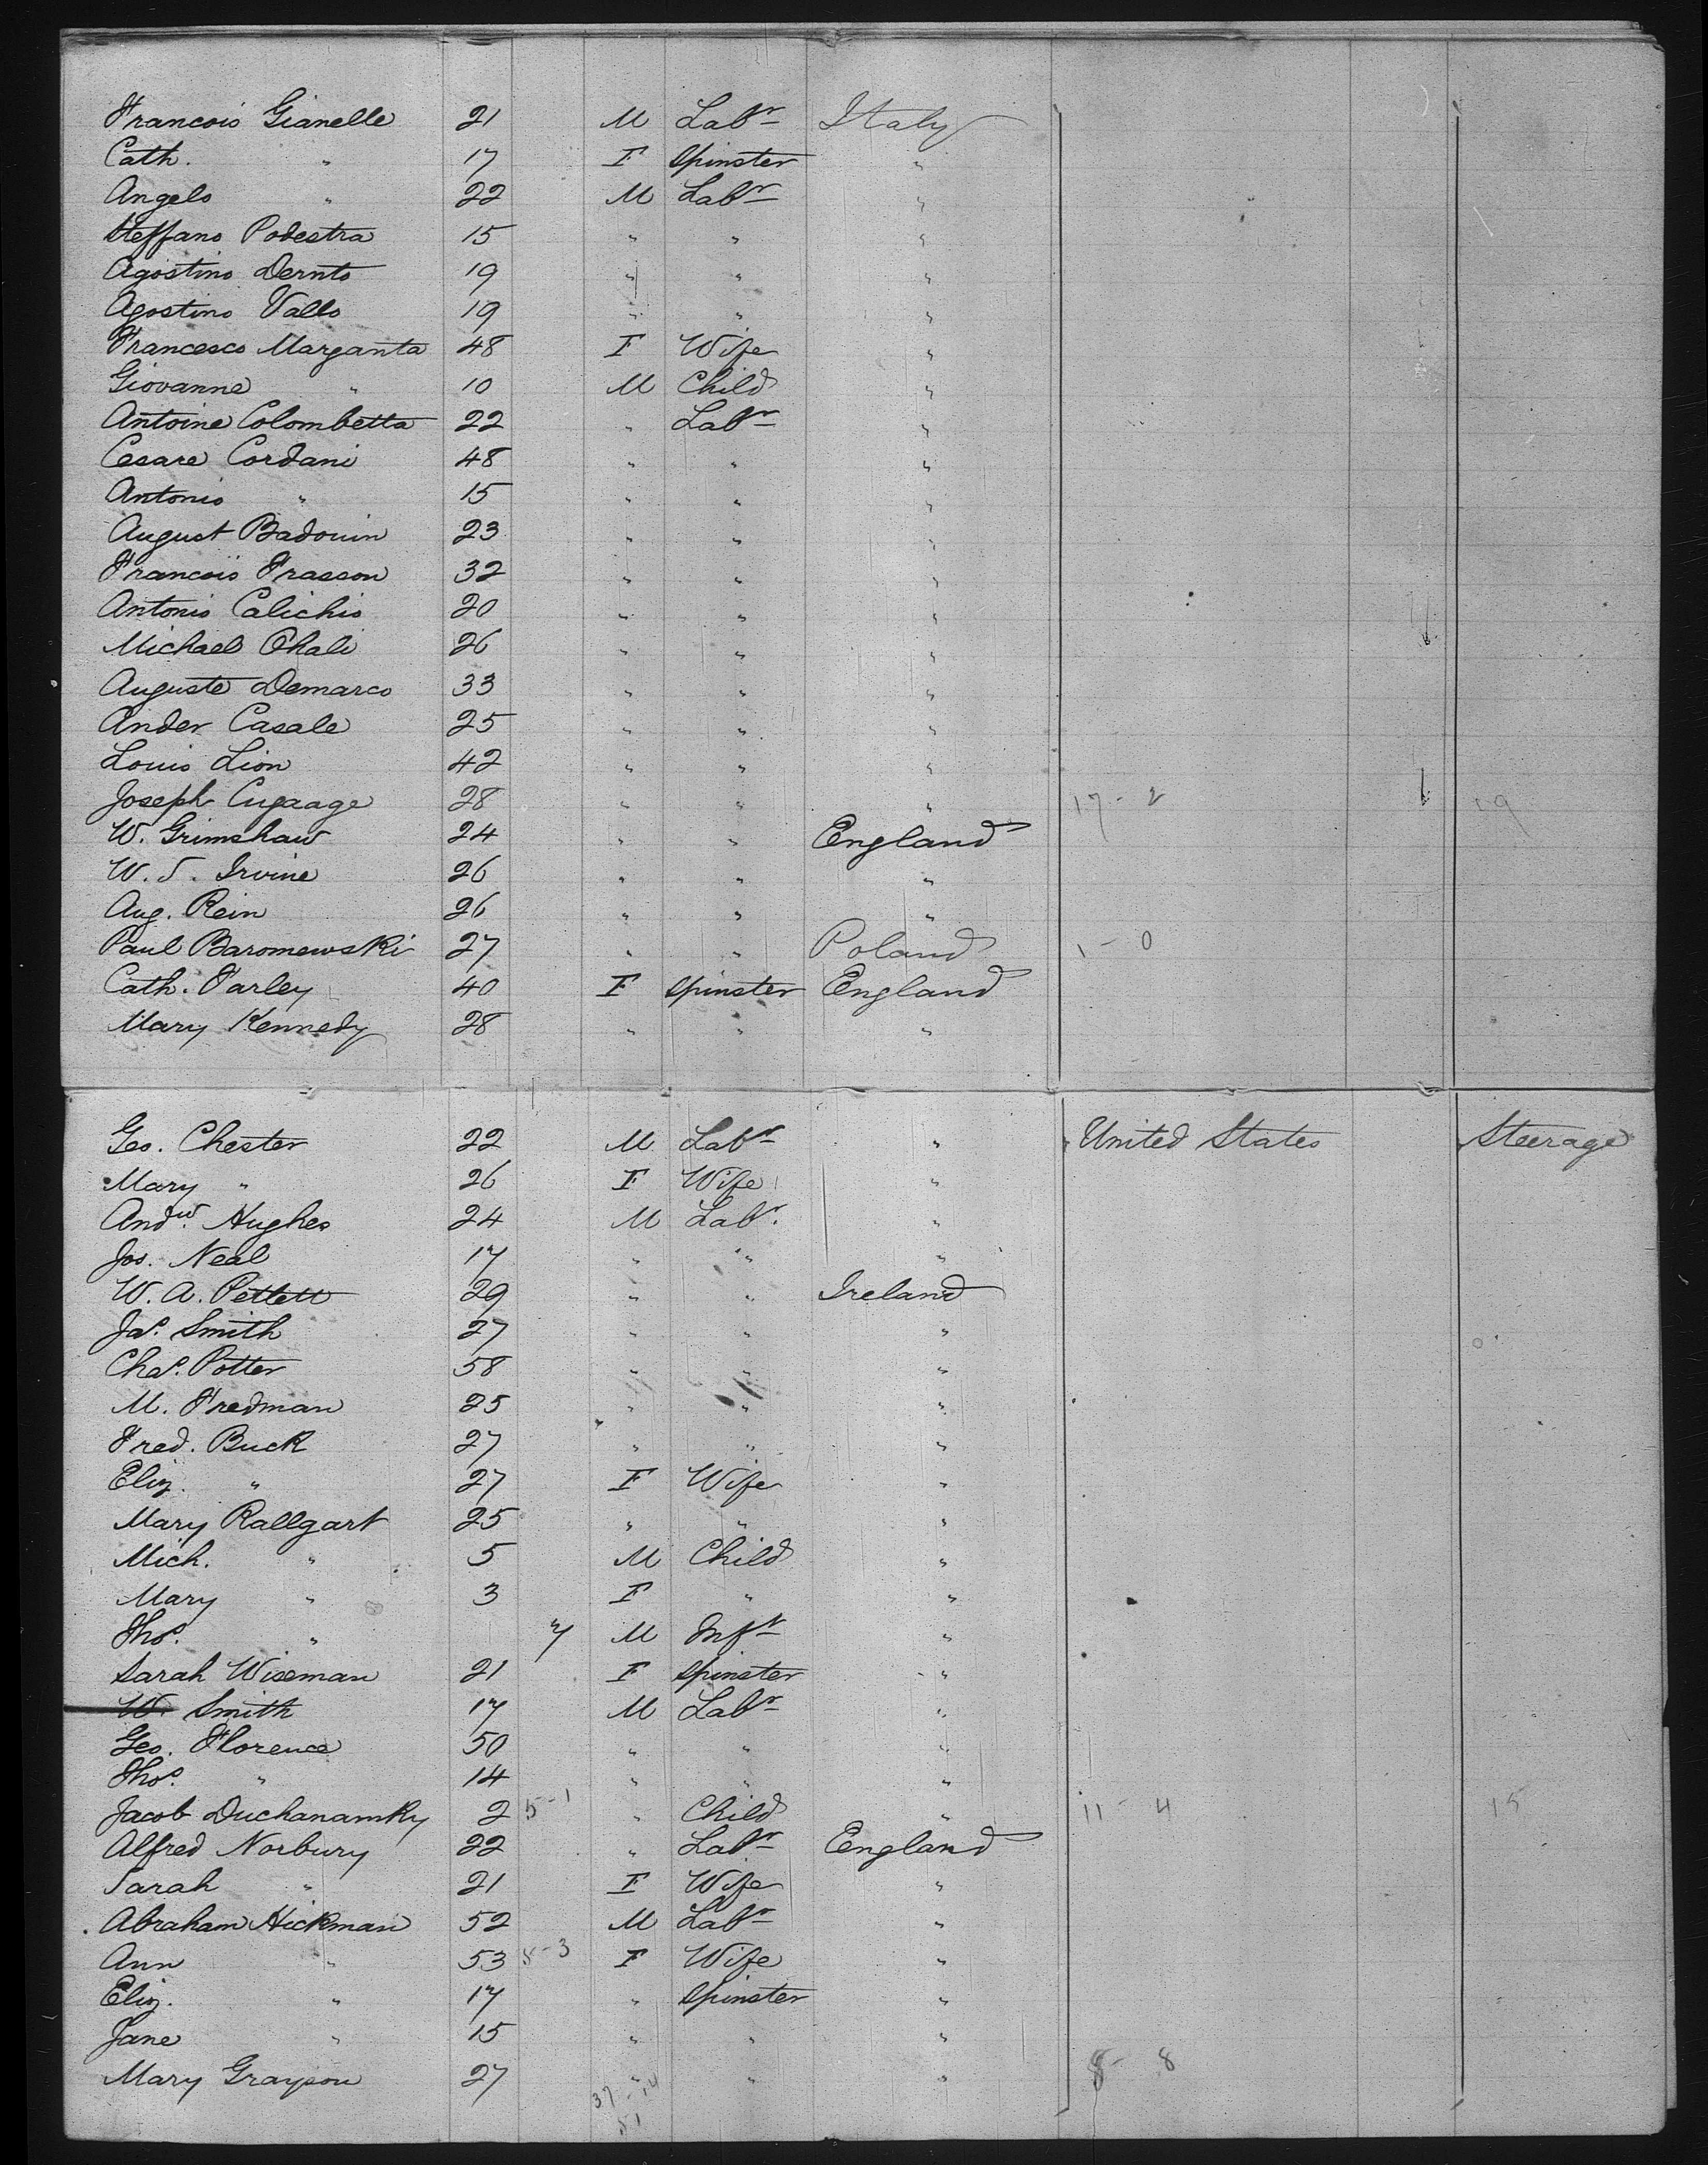 Francois Gianelle 21 M Labr Italy
Cath. " 17 F Spinster "
Angelo " 22 M Labr "
Steffano Podestra 15 " " "
Agostino Dernto 19 " " "
Agostino Vallo 19 " " "
Francesco Marganta 48 F Wife "
Giovanne " 10 M Child "
Antoine Colombetta 22 " Labr "
Cesare Cordani 48 " " "
Antonio " 15 " " "
August Badouin 23 " " "
Francois Frasson 32 " " "
Antonio Calichio 20 " " "
Michael Ohali 26 " " "
Auguste Demarco 33 " " "
Ander Casale 25 " " "
Louis Lion 42 " " "
Joseph Cugaage 28 " " " 17 - 2 19
W. Grimshaw 24 " " England
W. S. Irvine 26 " " "
Aug. Rein 26 " " "
Paul Baromewski 27 " " Poland 1 - 0
Cath. Farley 40 F Spinster England
Mary Kennedy 28 " " "
Geo. Chester 22 M Labr " United States Steerage
Mary " 26 F Wife "
Andw. Hughes 24 M Labr. "
Jos. Neal 17 " " "
W. A. Pettett 29 " " Ireland
Jas. Smith 27 " " "
Chas. Potter 58 " " "
M. Fredman 25 " " "
Fred. Buck 27 " " "
Eliz. " 27 F Wife "
Mary Rallgart 25 " " "
Mich. " 5 M Child "
Mary " 3 F " "
Thos. " 7 M Inft "
Sarah Wiseman 21 F Spinster "
W. Smith 17 M Labr "
Geo. Florence 50 " " "
Thos. " 14 " " "
Jacob Duchanamky 2 5-1 " Child " 11 - 4 15
Alfred Norbury 22 " Labr England
Sarah " 21 F Wife "
Abraham Hickman 52 M Labr "
Ann " 53 8-3 F Wife "
Eliz. " 17 " Spinster "
Jane " 15 " " "
Mary Grayson 27 " " " 8 - 8
37 - 14
51